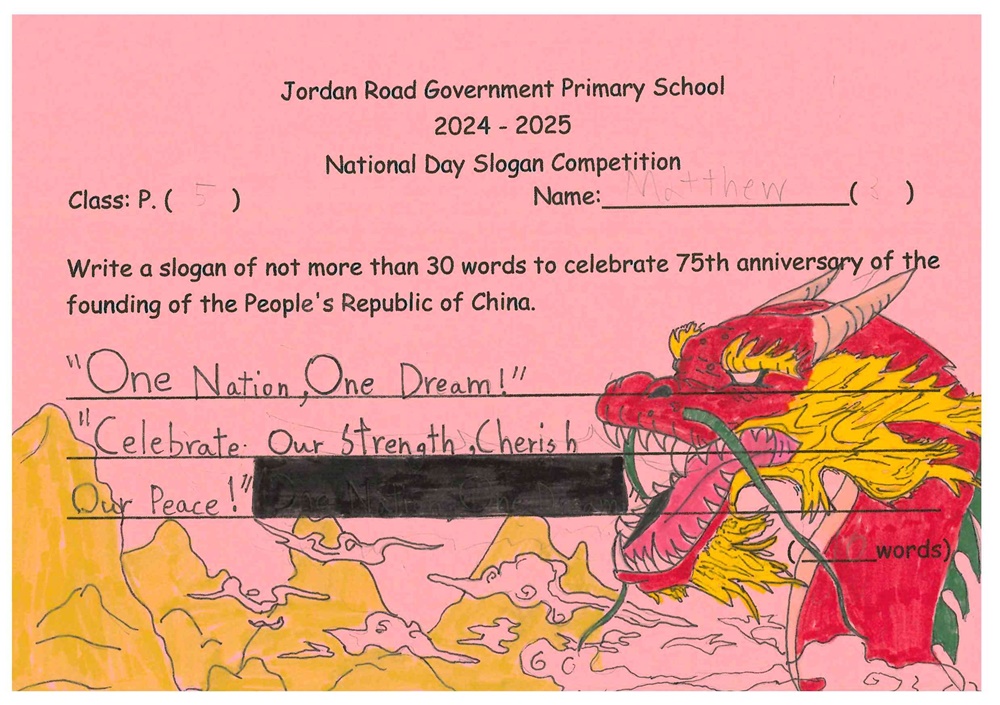 Jordan Road Government Primary School
2024 - 2025
National Day Slogan Competition
Class: P. ( 5 ) Name: Matthew ( )
Write a slogan of not more than 30 words to celebrate 75th anniversary of the
founding of the People's Republic of China.
"One Nation, One Dream!"
"Celebrate Our Strength, Cherish
Our Peace!"
( words)